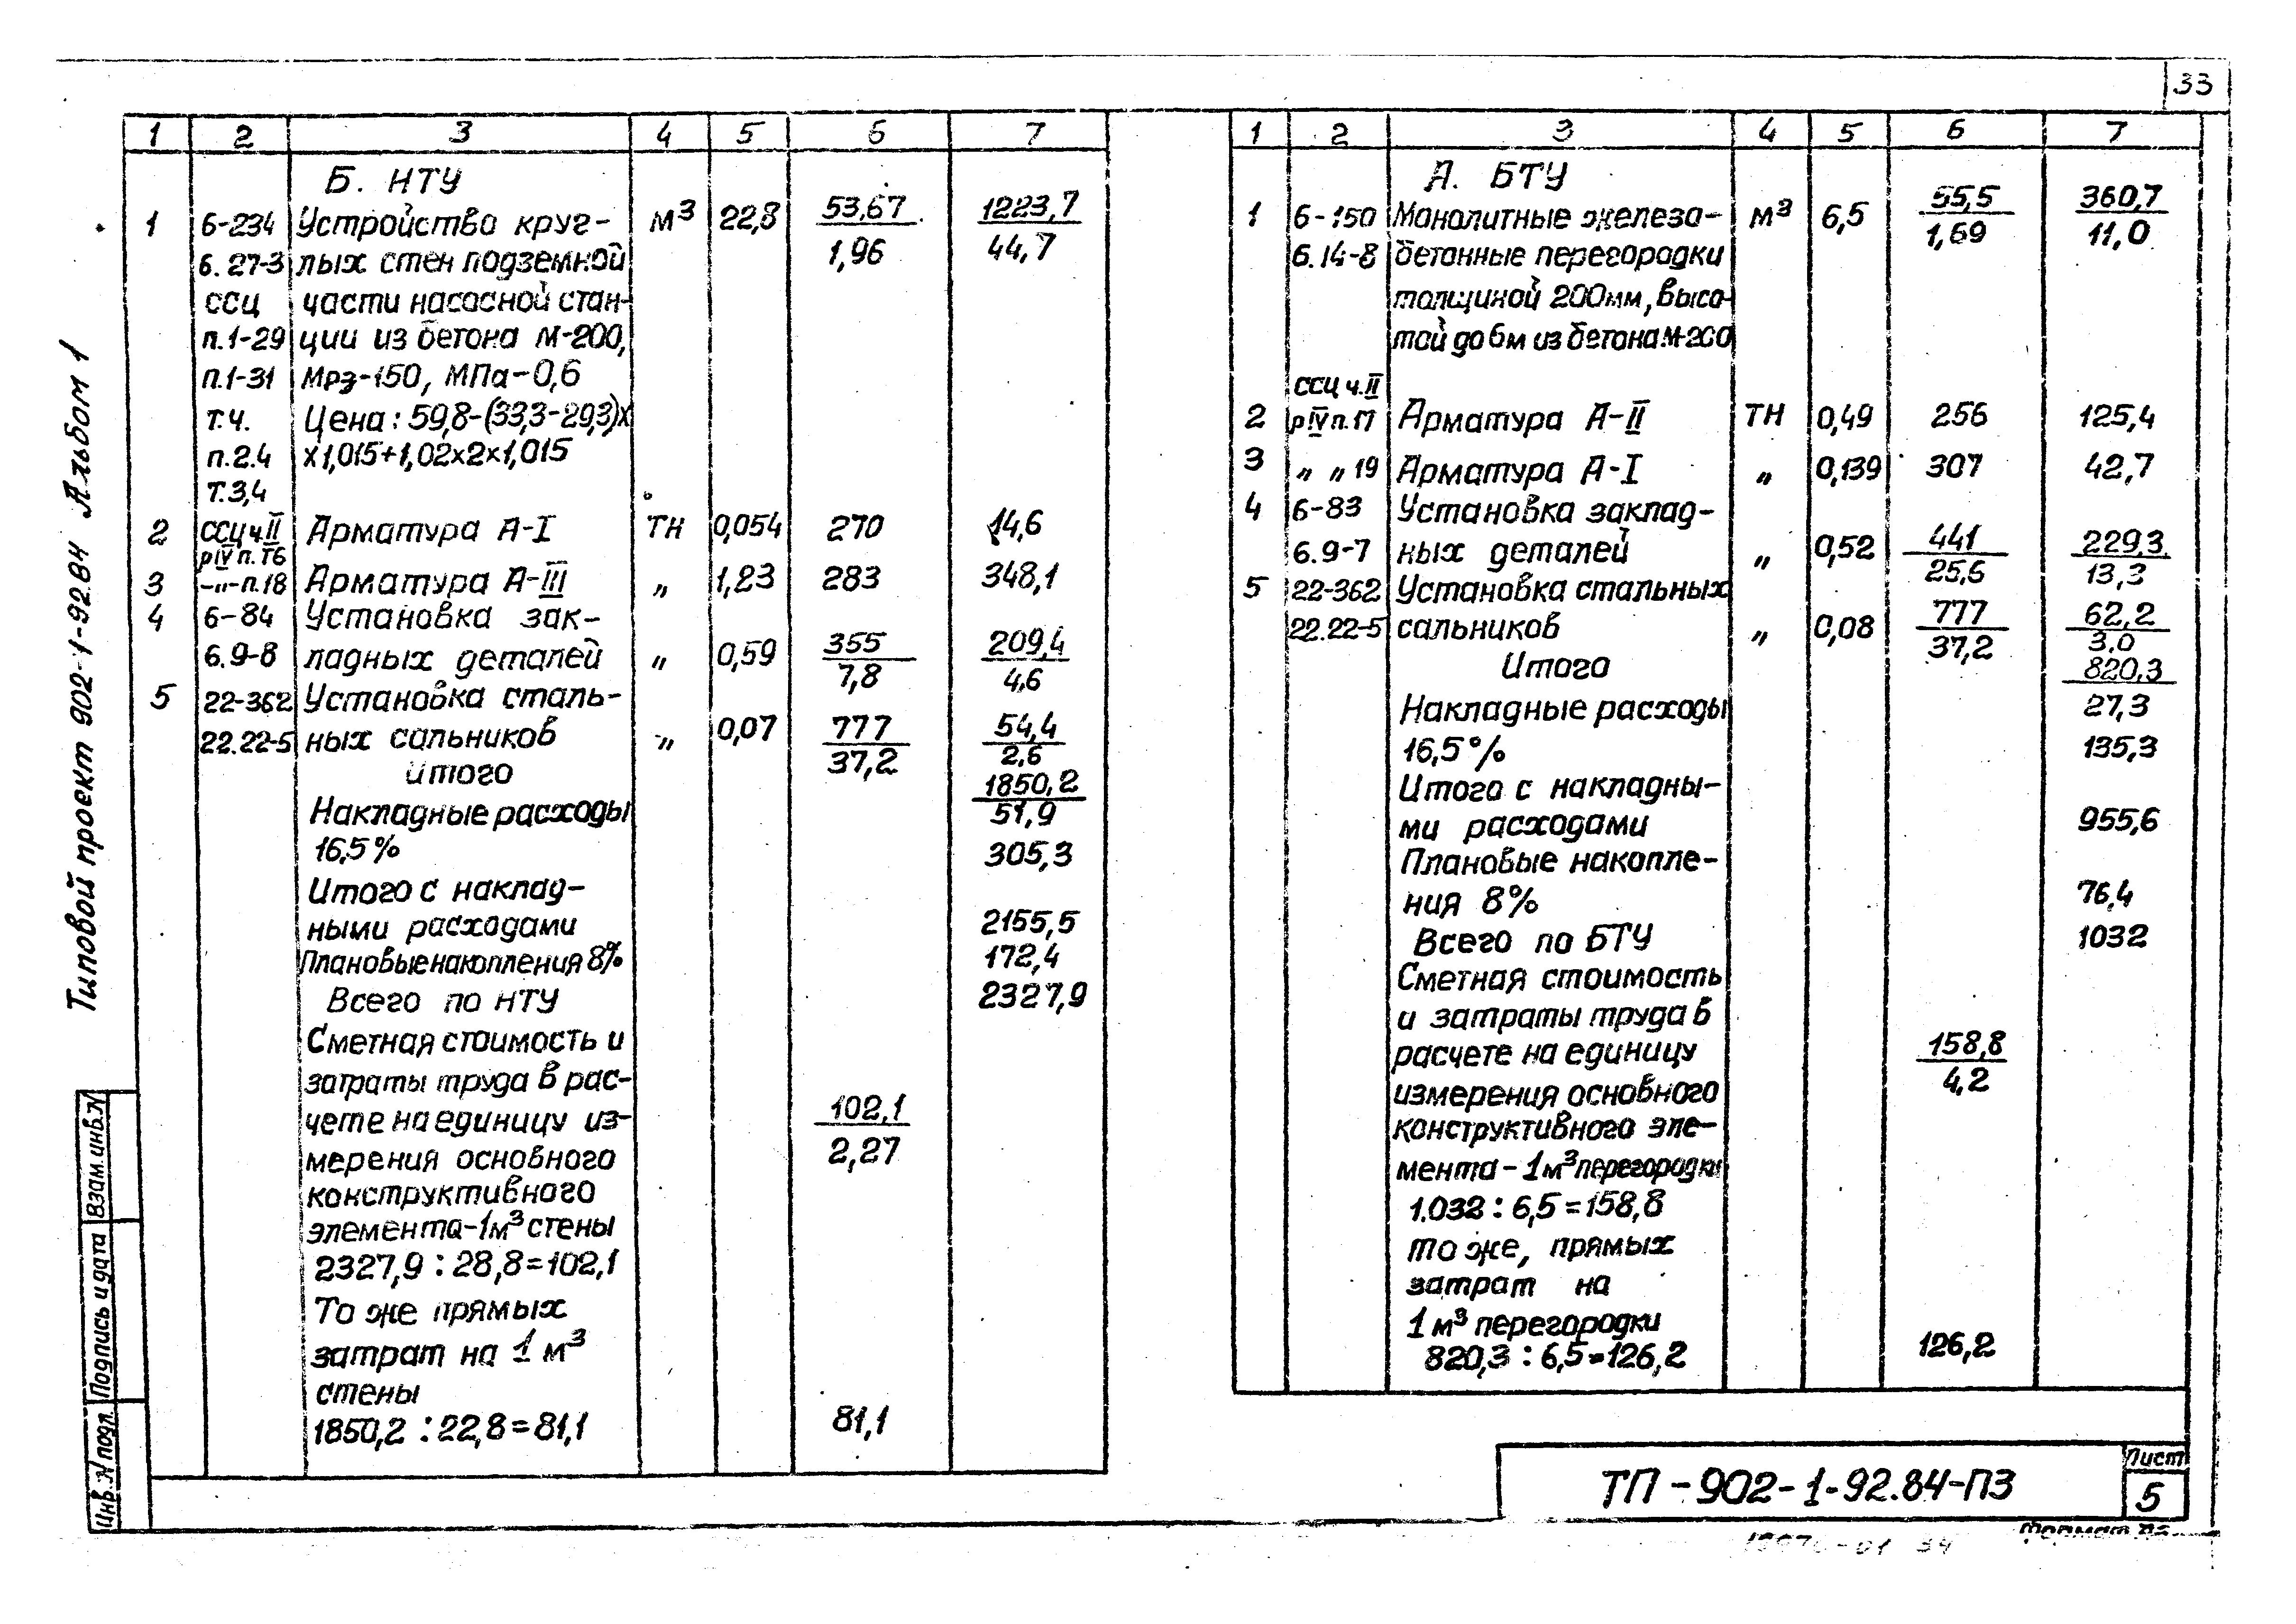 33
Типовой проект 902-1-92.84 Альбом 1
1 2 3 4 5 6 7
Б. НТУ
1 6-234 Устройство круг- м³ 22,8 53,67 1223,7
6.27-3 лых стен подземной 1,96 44,7
ССЦ части насосной стан-
п.1-29 ции из бетона М-200,
п.1-31 Мрз-150, МПа-0,6
т.ч. Цена: 59,8-(33,3-29,3)х
п.2.4 х1,015+1,02х2х1,015
т.3,4
2 ССЦ ч.II Арматура А-I ТН 0,054 270 14,6
рIV п.16
3 -„-п.18 Арматура А-III „ 1,23 283 348,1
4 6-84 Установка зак-
6.9-8 ладных деталей „ 0,59 355 209,4
7,8 4,6
5 22-362 Установка сталь-
22.22-5 ных сальников „ 0,07 777 54,4
37,2 2,6
Итого 1850,2
Накладные расходы 51,9
16,5% 305,3
Итого с наклад-
ными расходами 2155,5
Плановые накопления 8% 172,4
Всего по НТУ 2327,9
Сметная стоимость и
затраты труда в рас-
чете на единицу из- 102,1
мерения основного 2,27
конструктивного
элемента-1м³ стены
2327,9 : 28,8=102,1
То же прямых
затрат на 1 м³
стены
1850,2 : 22,8=81,1 81,1
1 2 3 4 5 6 7
А. БТУ
1 6-150 Монолитные железо- м³ 6,5 55,5 360,7
6.14-8 бетонные перегородки 1,69 11,0
толщиной 200мм, высо-
той до 6м из бетона М-200
ССЦ ч.II
2 рIV п.17 Арматура А-II ТН 0,49 256 125,4
3 „ „ 19 Арматура А-I „ 0,139 307 42,7
4 6-83 Установка заклад-
6.9-7 ных деталей „ 0,52 441 229,3
25,6 13,3
5 22-362 Установка стальных
22.22-5 сальников „ 0,08 777 62,2
37,2 3,0
Итого 820,3
Накладные расходы 27,3
16,5% 135,3
Итого с накладны-
ми расходами 955,6
Плановые накопле-
ния 8% 76,4
Всего по БТУ 1032
Сметная стоимость
и затраты труда в
расчете на единицу 158,8
измерения основного 4,2
конструктивного эле-
мента-1м³ перегородки
1.032 : 6,5=158,8
то же, прямых
затрат на
1 м³ перегородки
820,3 : 6,5=126,2 126,2
Взам. инв. N
Подпись и дата
Инв. N подл.
ТП-902-1-92.84-ПЗ
Лист
5
Формат
34